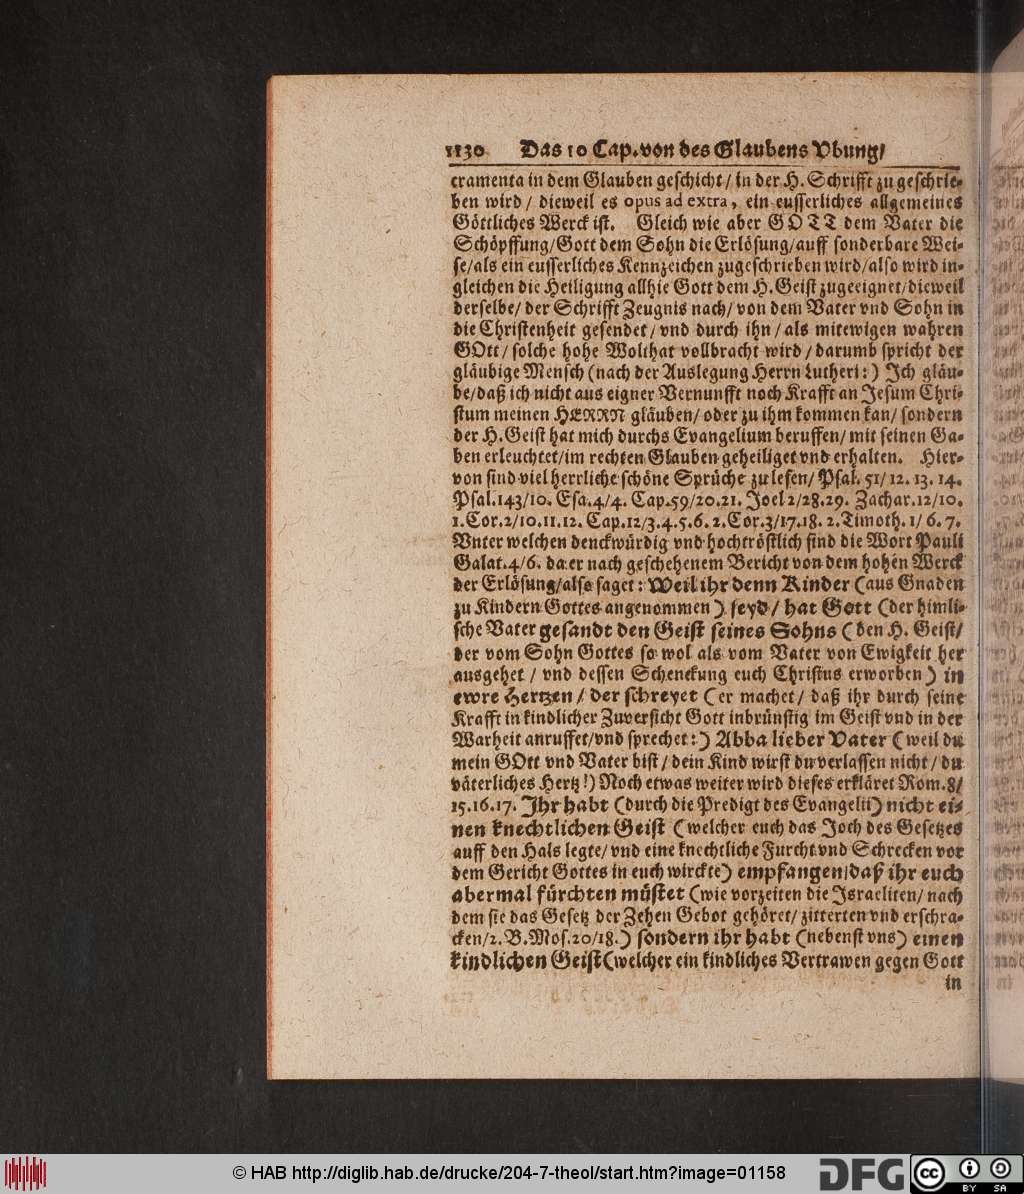 1130 Das 10 Cap. von des Glaubens Vbung/
cramenta in dem Glauben geschicht/ in der H. Schrifft zu geschrie-
ben wird/ dieweil es opus ad extra, ein eusserliches allgemeines
Göttliches Werck ist. Gleich wie aber GOTT dem Vater die
Schöpffung/Gott dem Sohn die Erlösung/auff sonderbare Wei-
se/als ein eusserliches Kennzeichen zugeschrieben wird/also wird in-
gleichen die Heiligung allhie Gott dem H. Geist zugeeignet/dieweil
derselbe/ der Schrifft Zeugnis nach/ von dem Vater vnd Sohn in
die Christenheit gesendet/ vnd durch ihn/ als mitewigen wahren
GOtt/ solche hohe Wolthat vollbracht wird/ darumb spricht der
gläubige Mensch (nach der Auslegung Herrn Lutheri:) Jch gläu-
be/daß ich nicht aus eigner Vernunfft noch Krafft an Jesum Chri-
stum meinen HERRN gläuben/ oder zu ihm kommen kan/ sondern
der H. Geist hat mich durchs Evangelium beruffen/ mit seinen Ga-
ben erleuchtet/im rechten Glauben geheiliget vnd erhalten. Hier-
von sind viel herrliche schöne Sprüche zu lesen/ Psal. 51/12. 13. 14.
Psal.143/10. Esa.4/4. Cap.59/20.21. Joel 2/28.29. Zachar.12/10.
1.Cor.2/10.11.12. Cap.12/3.4.5.6. 2.Cor.3/17.18. 2.Timoth. 1/ 6. 7.
Vnter welchen denckwürdig vnd hochtröstlich sind die Wort Pauli
Galat.4/6. da er nach geschehenem Bericht von dem hohen Werck
der Erlösung/also saget: Weil ihr denn Kinder (aus Gnaden
zu Kindern Gottes angenommen) seyd/ hat Gott (der himli-
sche Vater gesandt den Geist seines Sohns (den H. Geist/
der vom Sohn Gottes so wol als vom Vater von Ewigkeit her
ausgehet/ vnd dessen Schenckung euch Christus erworben) in
ewre Hertzen/ der schreyet (er machet/ daß ihr durch seine
Krafft in kindlicher Zuversicht Gott inbrünstig im Geist vnd in der
Warheit anruffet/vnd sprechet:) Abba lieber Vater (weil du
mein GOtt vnd Vater bist/ dein Kind wirst du verlassen nicht/ du
väterliches Hertz!) Noch etwas weiter wird dieses erkläret Rom.8/
15.16.17. Jhr habt (durch die Predigt des Evangelii) nicht ei-
nen knechtlichen Geist (welcher euch das Joch des Gesetzes
auff den Hals legte/ vnd eine knechtliche Furcht vnd Schrecken vor
dem Gericht Gottes in euch wirckte) empfangen/daß ihr euch
abermal fürchten müstet (wie vorzeiten die Israeliten/ nach
dem sie das Gesetz der Zehen Gebot gehöret/ zitterten vnd erschra-
cken/2. B.Mos.20/18.) sondern ihr habt (nebenst vns) einen
kindlichen Geist (welcher ein kindliches Vertrawen gegen Gott
in
© HAB http://diglib.hab.de/drucke/204-7-theol/start.htm?image=01158
DFG
cc
BY SA